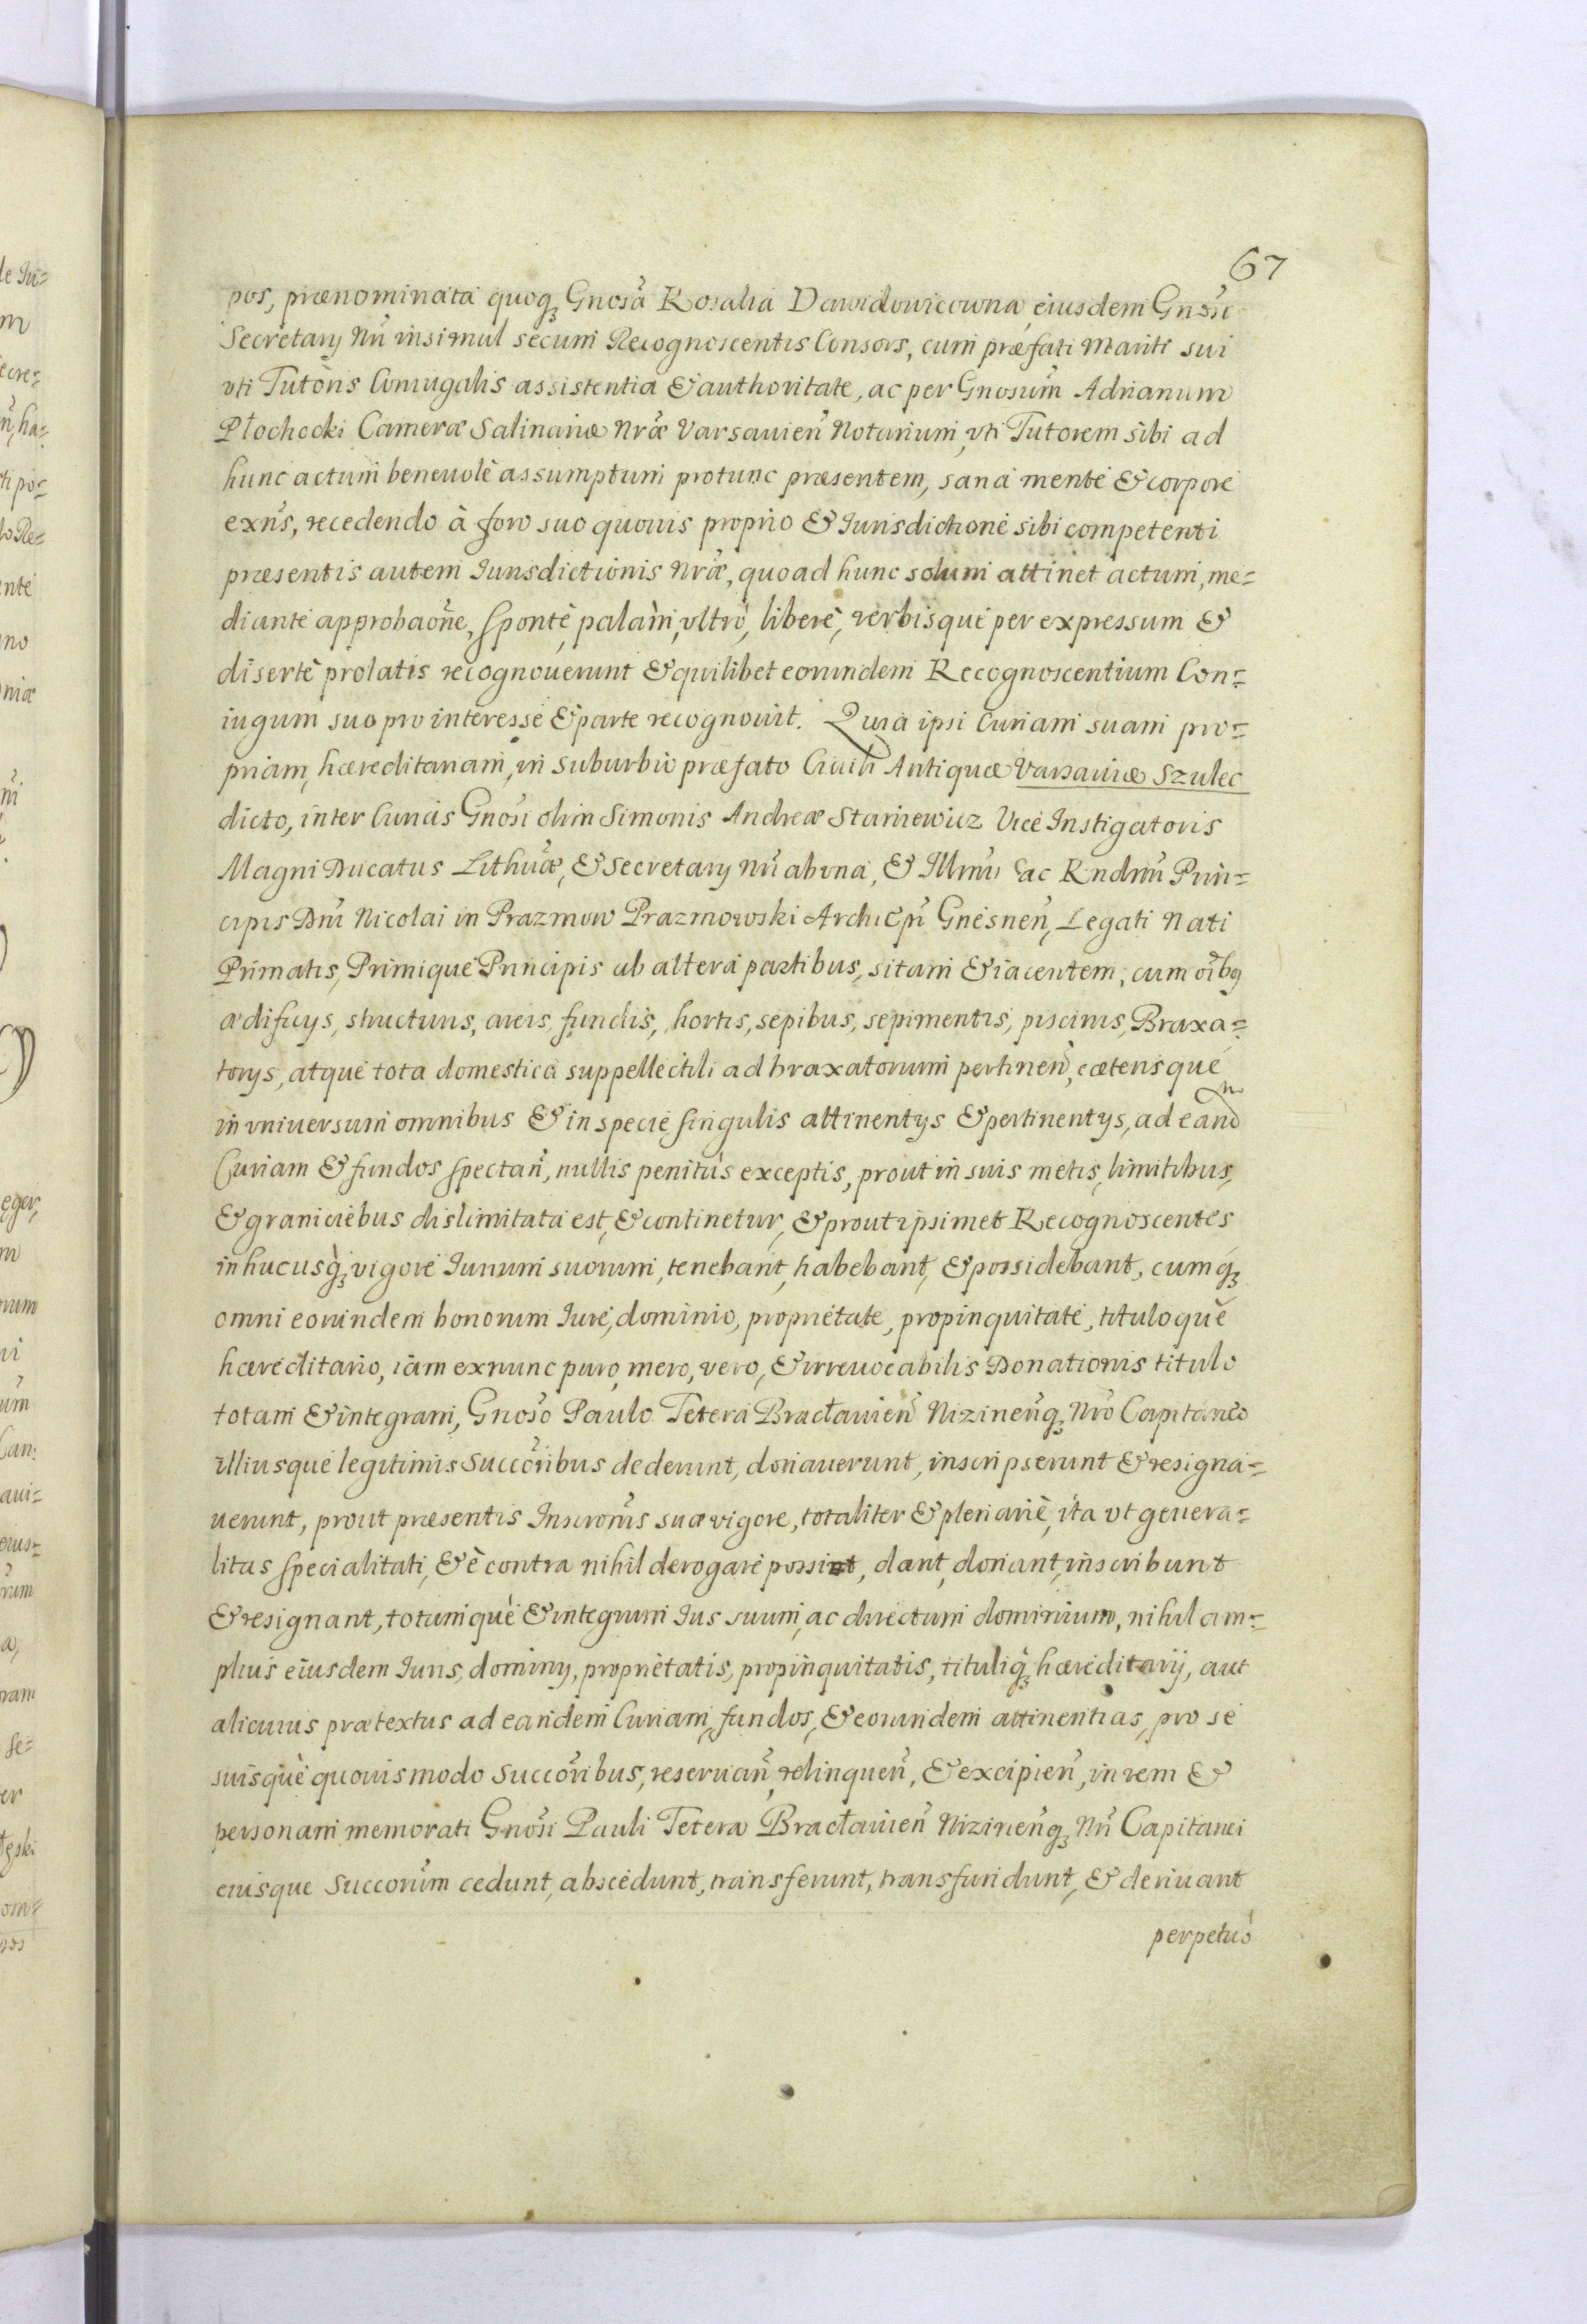 67
pos, prænominata quoq₃ Gnosã Rosalia Dawidowicowna, eiusdem Gnosi
Secretarÿ Nrĩ insimul secum Recognoscentis Consors, cum præfati mariti sui
vti Tutoris Coniugalis assistentia & authoritate, ac per Gnosum̃ Adrianum
Płochocki Cameræ Salinariæ Nræ̃ Varsavien̂ Notarium, vti Tutorem sibi ad
hunc actum beneuolè assumptum protunc præsentem, sana mente & corpore
exñs, recedendo à foro suo quouis proprio & Iurisdictione sibi competenti
præsentis autem Iurisdictionis Nræ̃, quoad hunc solum attinet actum, me=
diante approbaõne, spontè, palàm, vltrò, liberè, verbisque per expressum &
disertè prolatis recognouerunt & quilibet eorundem Recognoscentium Con=
iugum suo pro interesse & parte recognouit. Quia ipsi Curiam suam pro=
priam, hæreditariam, in suburbio præfato Ciuili Antiquæ Varsauiæ Szulec
dicto, inter Curias Gnosi olim Simonis Andreæ Staniewicz Vice Instigatoris
Magni Ducatus Lithuæ̃, & Secretarÿ Nrĩ ab vna, & Illmĩ ac Rndmĩ Prin=
cipis Dnĩ Nicolai in Prazmow Prazmowski ArchiEpĩ Gnesnen̂, Legati Nati
Primatis, Primique Principis ab altera partibus, sitam & iacentem, cum oĩbq
ædificÿs, structuris, areis, fundis, hortis, sepibus, sepimentis, piscinis, Braxa=
torÿs, atque tota domestica suppellectili ad braxatorium pertinen̂, cæterisque
in vniuersum omnibus & in specie singulis attinentÿs & pertinentÿs, ad eand̃
Curiam & fundos spectan̂, nullis penitùs exceptis, prout in suis metis, limitibus,
& graniciebus dislimitata est, & continetur, & prout ipsimet Recognoscentes
inhucusq̀₃ vigore Iurium suorum, tenebant, habebant, & possidebant, cumq₃
omni eorundem bonorum Iure, dominio, proprietate, propinquitate, tituloquè
hæreditario, iam exnunc puro, mero, vero, & irreuocabilis Donationis titulo
totam & integram, Gnosõ Paulo Tetera Bracłauien̂ Nizinen̂q₃ Nrõ Capitaneo
illiusque legitimis Succor̃ibus dederunt, donauerunt, inscripserunt & resigna=
uerunt, prout præsentis Inscronĩs suæ vigore, totaliter & plenariè, ita vt genera=
litas specialitati, & è contra nihil derogare possint, dant, donant, inscribunt
& resignant, totumquè & integrum Ius suum, ac directum dominium, nihil am=
plius eiusdem Iuris, dominÿ, proprietatis, propinquitatis, tituliq̀₃ hæreditarij, aut
alicuius prætextus ad eandem Curiam, fundos, & eorundem attinentias, pro se
suisquè quouismodo Succor̃ibus, reseruan̂, relinquen̂, & excipien̂, in rem &
personam memorati Gnosĩ Pauli Tetera Bracłauien̂ Nizinen̂q₃ Nrĩ Capitanei
eiusque Succorum̃ cedunt, abscedunt, transferunt, transfundunt, & deriuant
perpetuò